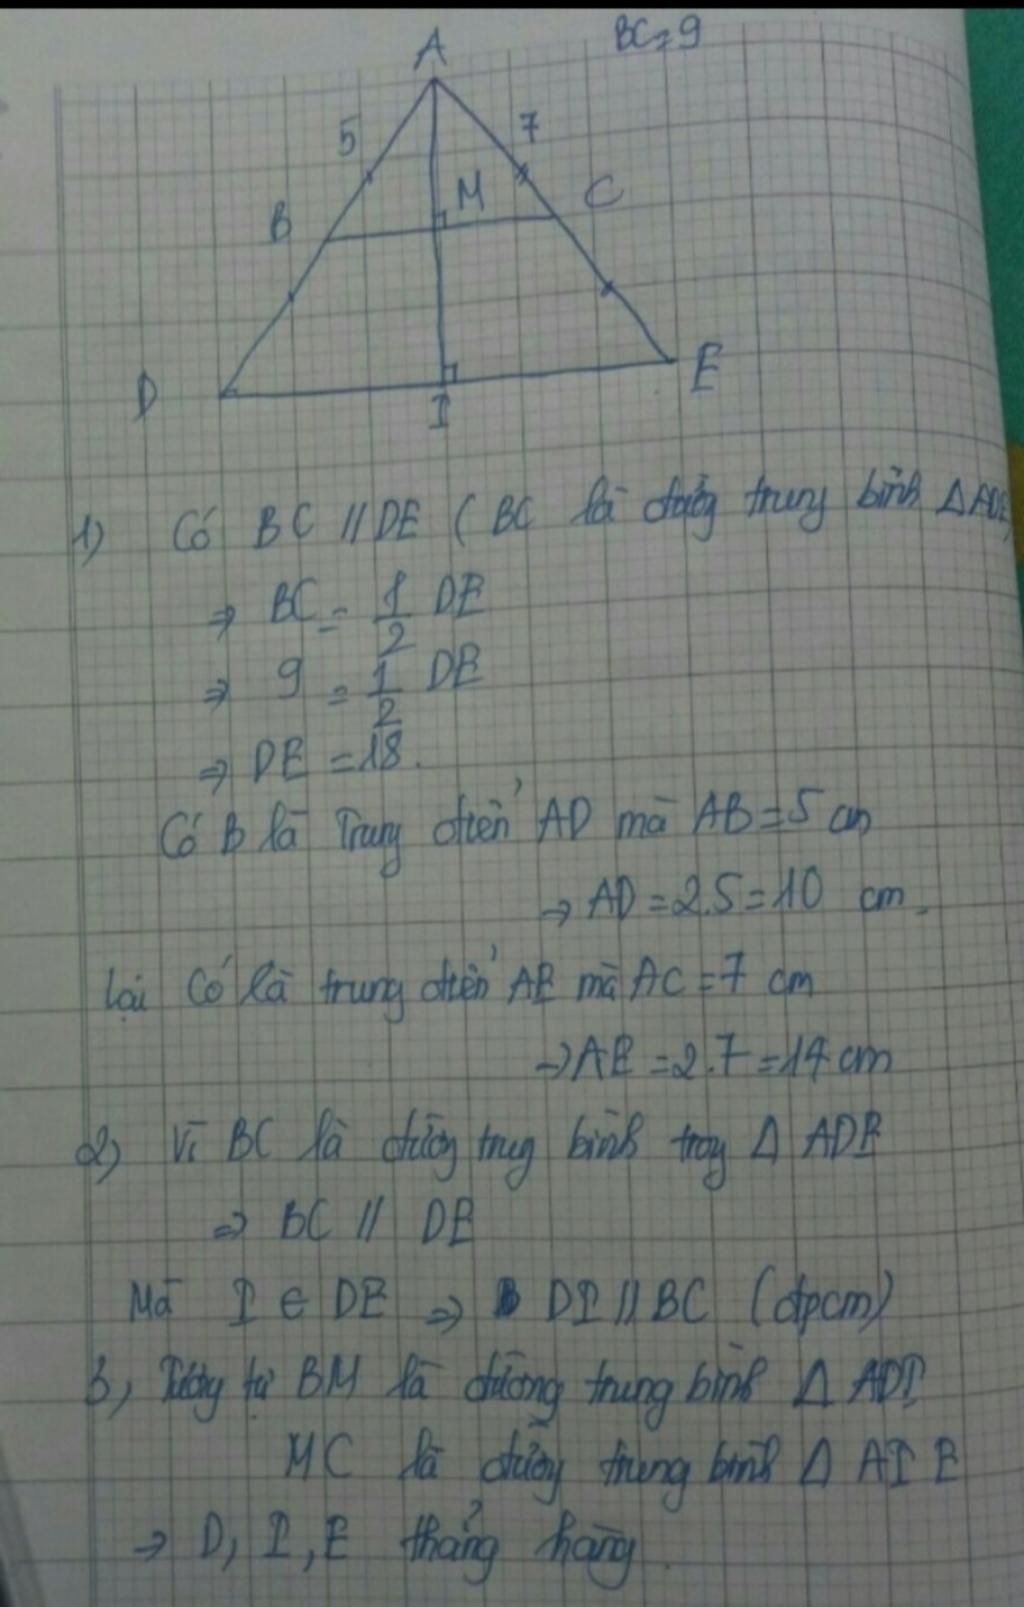 BC = 9
A
5
7
B
M
C
D
I
E
1) Có BC // DE (BC là đường trung bình Δ ADE)
⇒ BC = 1/2 DE
⇒ 9 = 1/2 DE
⇒ DE = 18.
Có B là Trung điểm AD mà AB = 5 cm
→ AD = 2.5 = 10 cm.
Lại Có là trung điểm AE mà AC = 7 cm
→ AE = 2.7 = 14 cm
2) Vì BC là đường trung bình trong Δ ADE
⇒ BC // DE
Mà I ∈ DE ⇒ DI // BC (đpcm)
3, Tương tự BM là đường trung bình Δ ADI
MC là đường trung bình Δ AIE
→ D, I, E thẳng hàng.